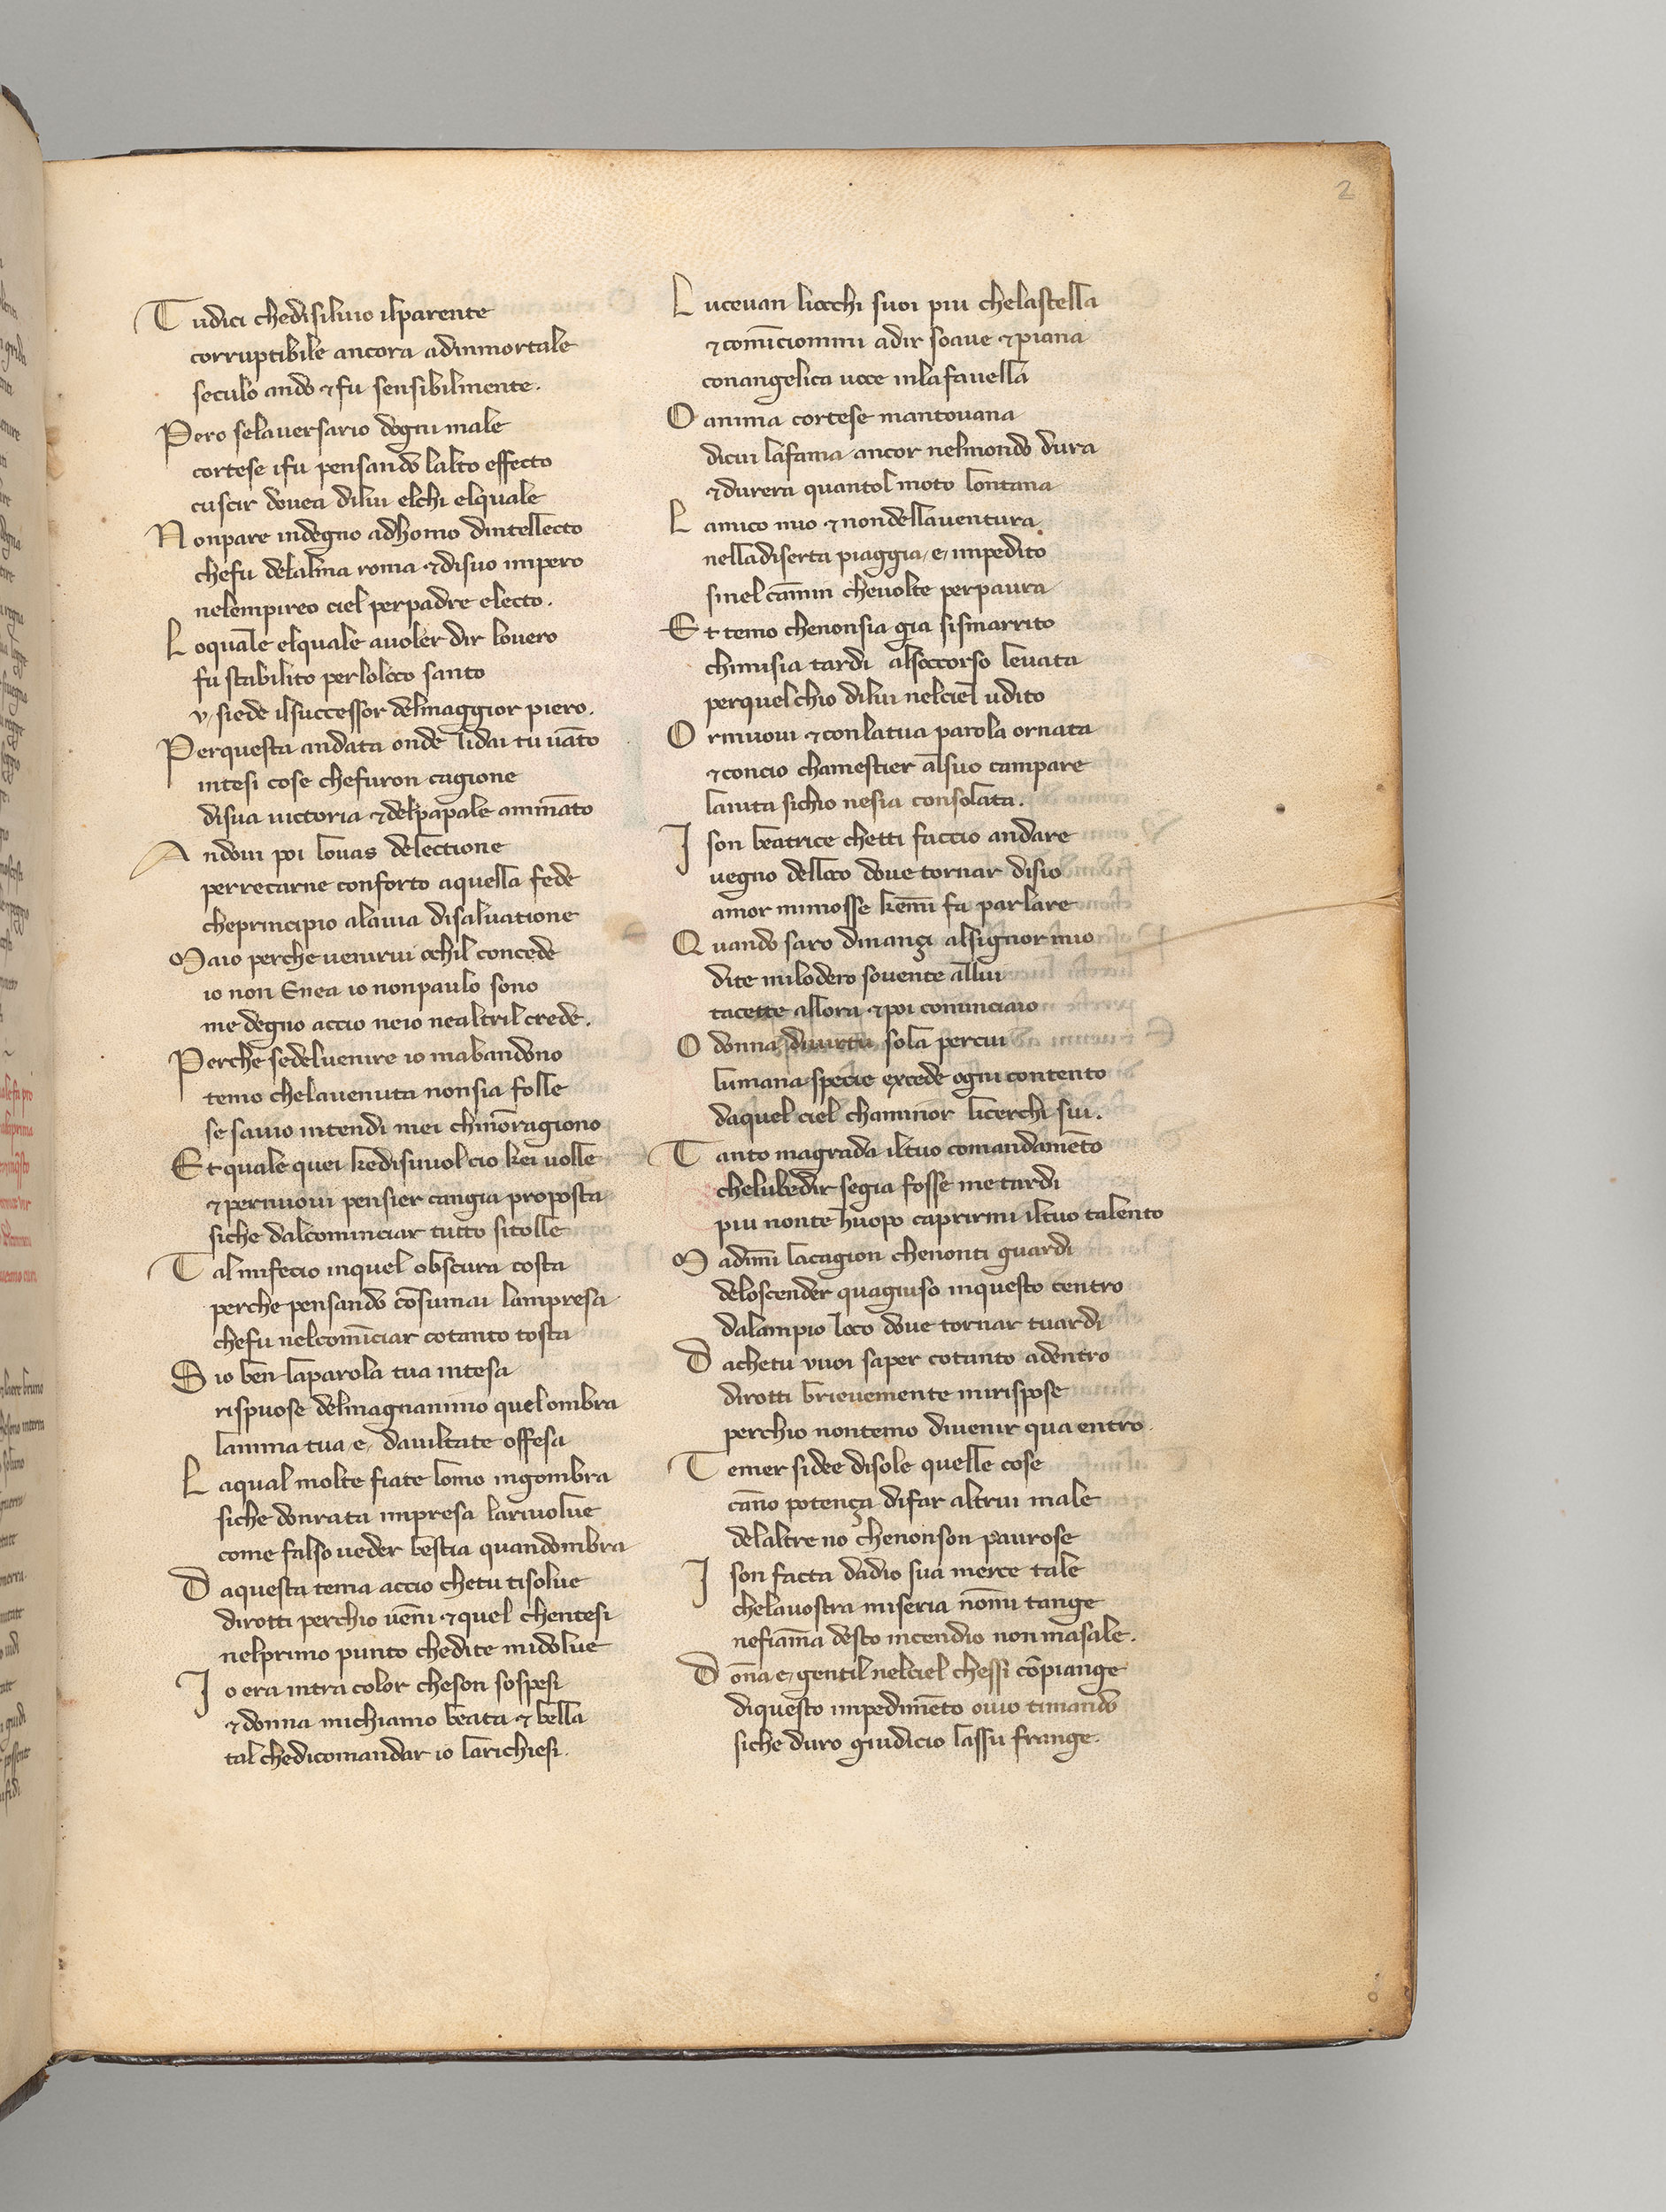 2
Tudici chedisiluio ilparente
corruptibile ancora adinmortale
seculo ando ⁊ fu sensibilmente.
Pero selauersario dogni male
cortese ifu pensando lalto effecto
cuscir douea dilui elchi elquale
Nonpare indegno adhomo dintellecto
chefu delalma roma ⁊ disuo impero
nelempireo ciel perpadre electo.
Loquale elquale auoler dir louero
fu stabilito perloloco santo
v, siede ilsuccessor delmaggior piero.
Perquesta andata onde lidai tu uāto
intesi cose chefuron cagione
disua uictoria ⁊ delpapale ammāto
Andoui poi louas delectione
perrecarne conforto aquella fede
cheprincipio alauia disaluatione
Maio perche uenirui ochil concede
io non Enea io nonpaulo sono
me degno accio neio nealtril crede.
Perche sedeluenire io mabandono
temo chelauenuta nonsia folle
se sauio intendi mei chinōragiono
Et quale quei kedisuuol cio kei uolle
⁊ pernuoui pensier cangia proposta
siche dalcominciar tutto sitolle
Tal mifecio inquel obscura costa
perche pensando cōsumai lampresa
chefu nelcomīciar cotanto tosta
Sio ben laparola tua intesa
rispuose delmagnanimo quel ombra
lanima tua, e, dauiltate offesa
Laqual molte fiate lomo ingombra
siche donrata impresa lariuolue
come falso ueder bestia quandombra
Daquesta tema accio chetu tisolue
dirotti perchio uēni ⁊ quel chentesi
nelprimo punto chedite midolue
Io era intra color cheson sospesi
⁊ donna michiamo beata ⁊ bella
tal chedicomandar io larichiesi.
Luceuan liocchi suoi piu chelastella
⁊ comīciommi adir soaue ⁊ piana
conangelica uoce insafauella
O anima cortese mantouana
dicui lafama ancor nelmondo dura
⁊ durera quantol moto lontana
Lamico mio ⁊ nondellauentura
nelladiserta piaggia, e, impedito
sinel cāmin cheuolte perpaura
Et temo chenonsia gia sismarrito
chimisia tardi alsoccorso leuata
perquel chio dilui nelciel udito
Ormuoui ⁊ conlatua parola ornata
⁊ concio chamestier alsuo campare
laiuta sichio nesia consolata.
I son beatrice chetti faccio andare
uegno delloco doue tornar disio
amor mimosse kemī fa parlare
Quando saro dinançi alsignor mio
dite milodero souente allui
tacette allora ⁊ poi cominciaio
O donna diuirtu sola percui
lumana specie excede ogni contento
daquel ciel chaminor licerchi sui.
Tanto magrada iltuo comandamēto
chelubedir segia fosse me tardi
piu nonte huopo caprirmi iltuo talento
Madimi lacagion chenonti guardi
deloscender quagiuso inquesto centro
dalampio loco doue tornar tuardi
Dachetu vuoi saper cotanto adentro
dirotti brieuemente mirispose
perchio nontemo diuenir qua entro.
Temer sidee disole quelle cose
cāno potença difar altrui male
delaltre no chenonson paurose
I son facta dadio sua merce tale
chelauostra miseria nōmi tange
nefiāma desto incendio non masale.
Dōna, e, gentil nelciel chessi cōpiange
diquesto impedimēto ouio timando
siche duro giudicio lassu frange.